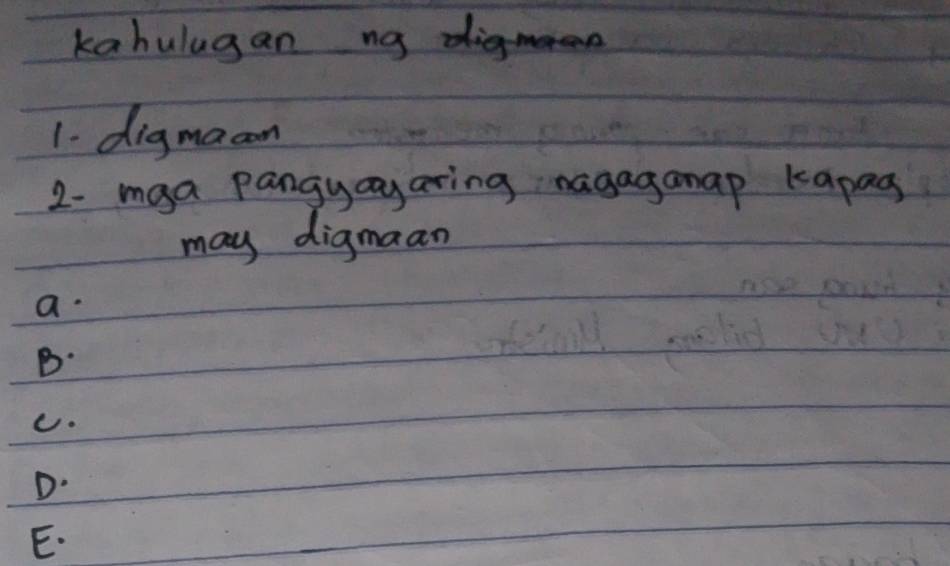 Kahulugan ng digmaan
1- digmaan
2- mga pangyayaring nagaganap kapag
may digmaan
a.
B.
C.
D.
E.